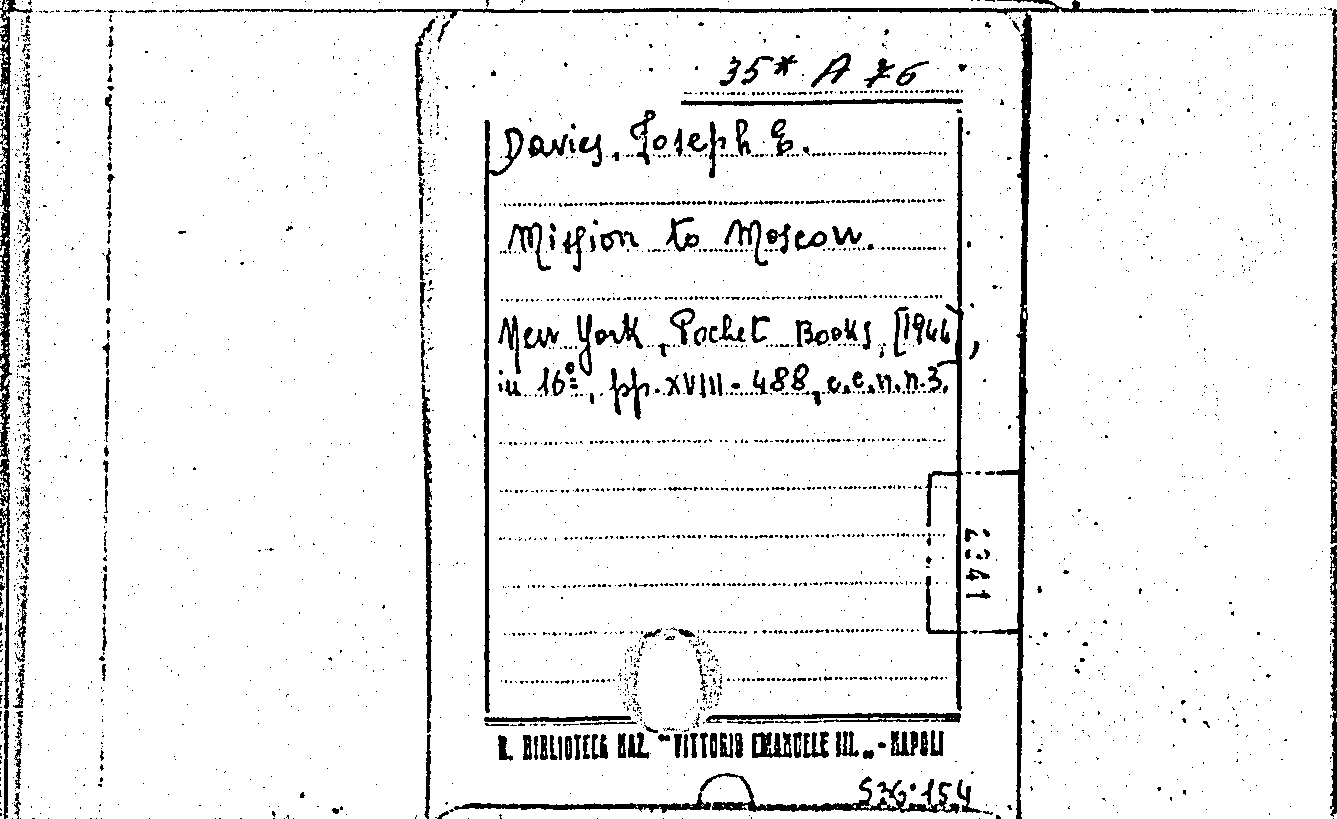 35* A 76
Davies, Joseph E.
Mission to Moscow.
New York, Pocket Books, [1944],
in 16º, pp. XVIII-488, c.e.n.n.3.
2341
R. BIBLIOTECA NAZ. "VITTORIO EMANUELE III" - NAPOLI
536.154